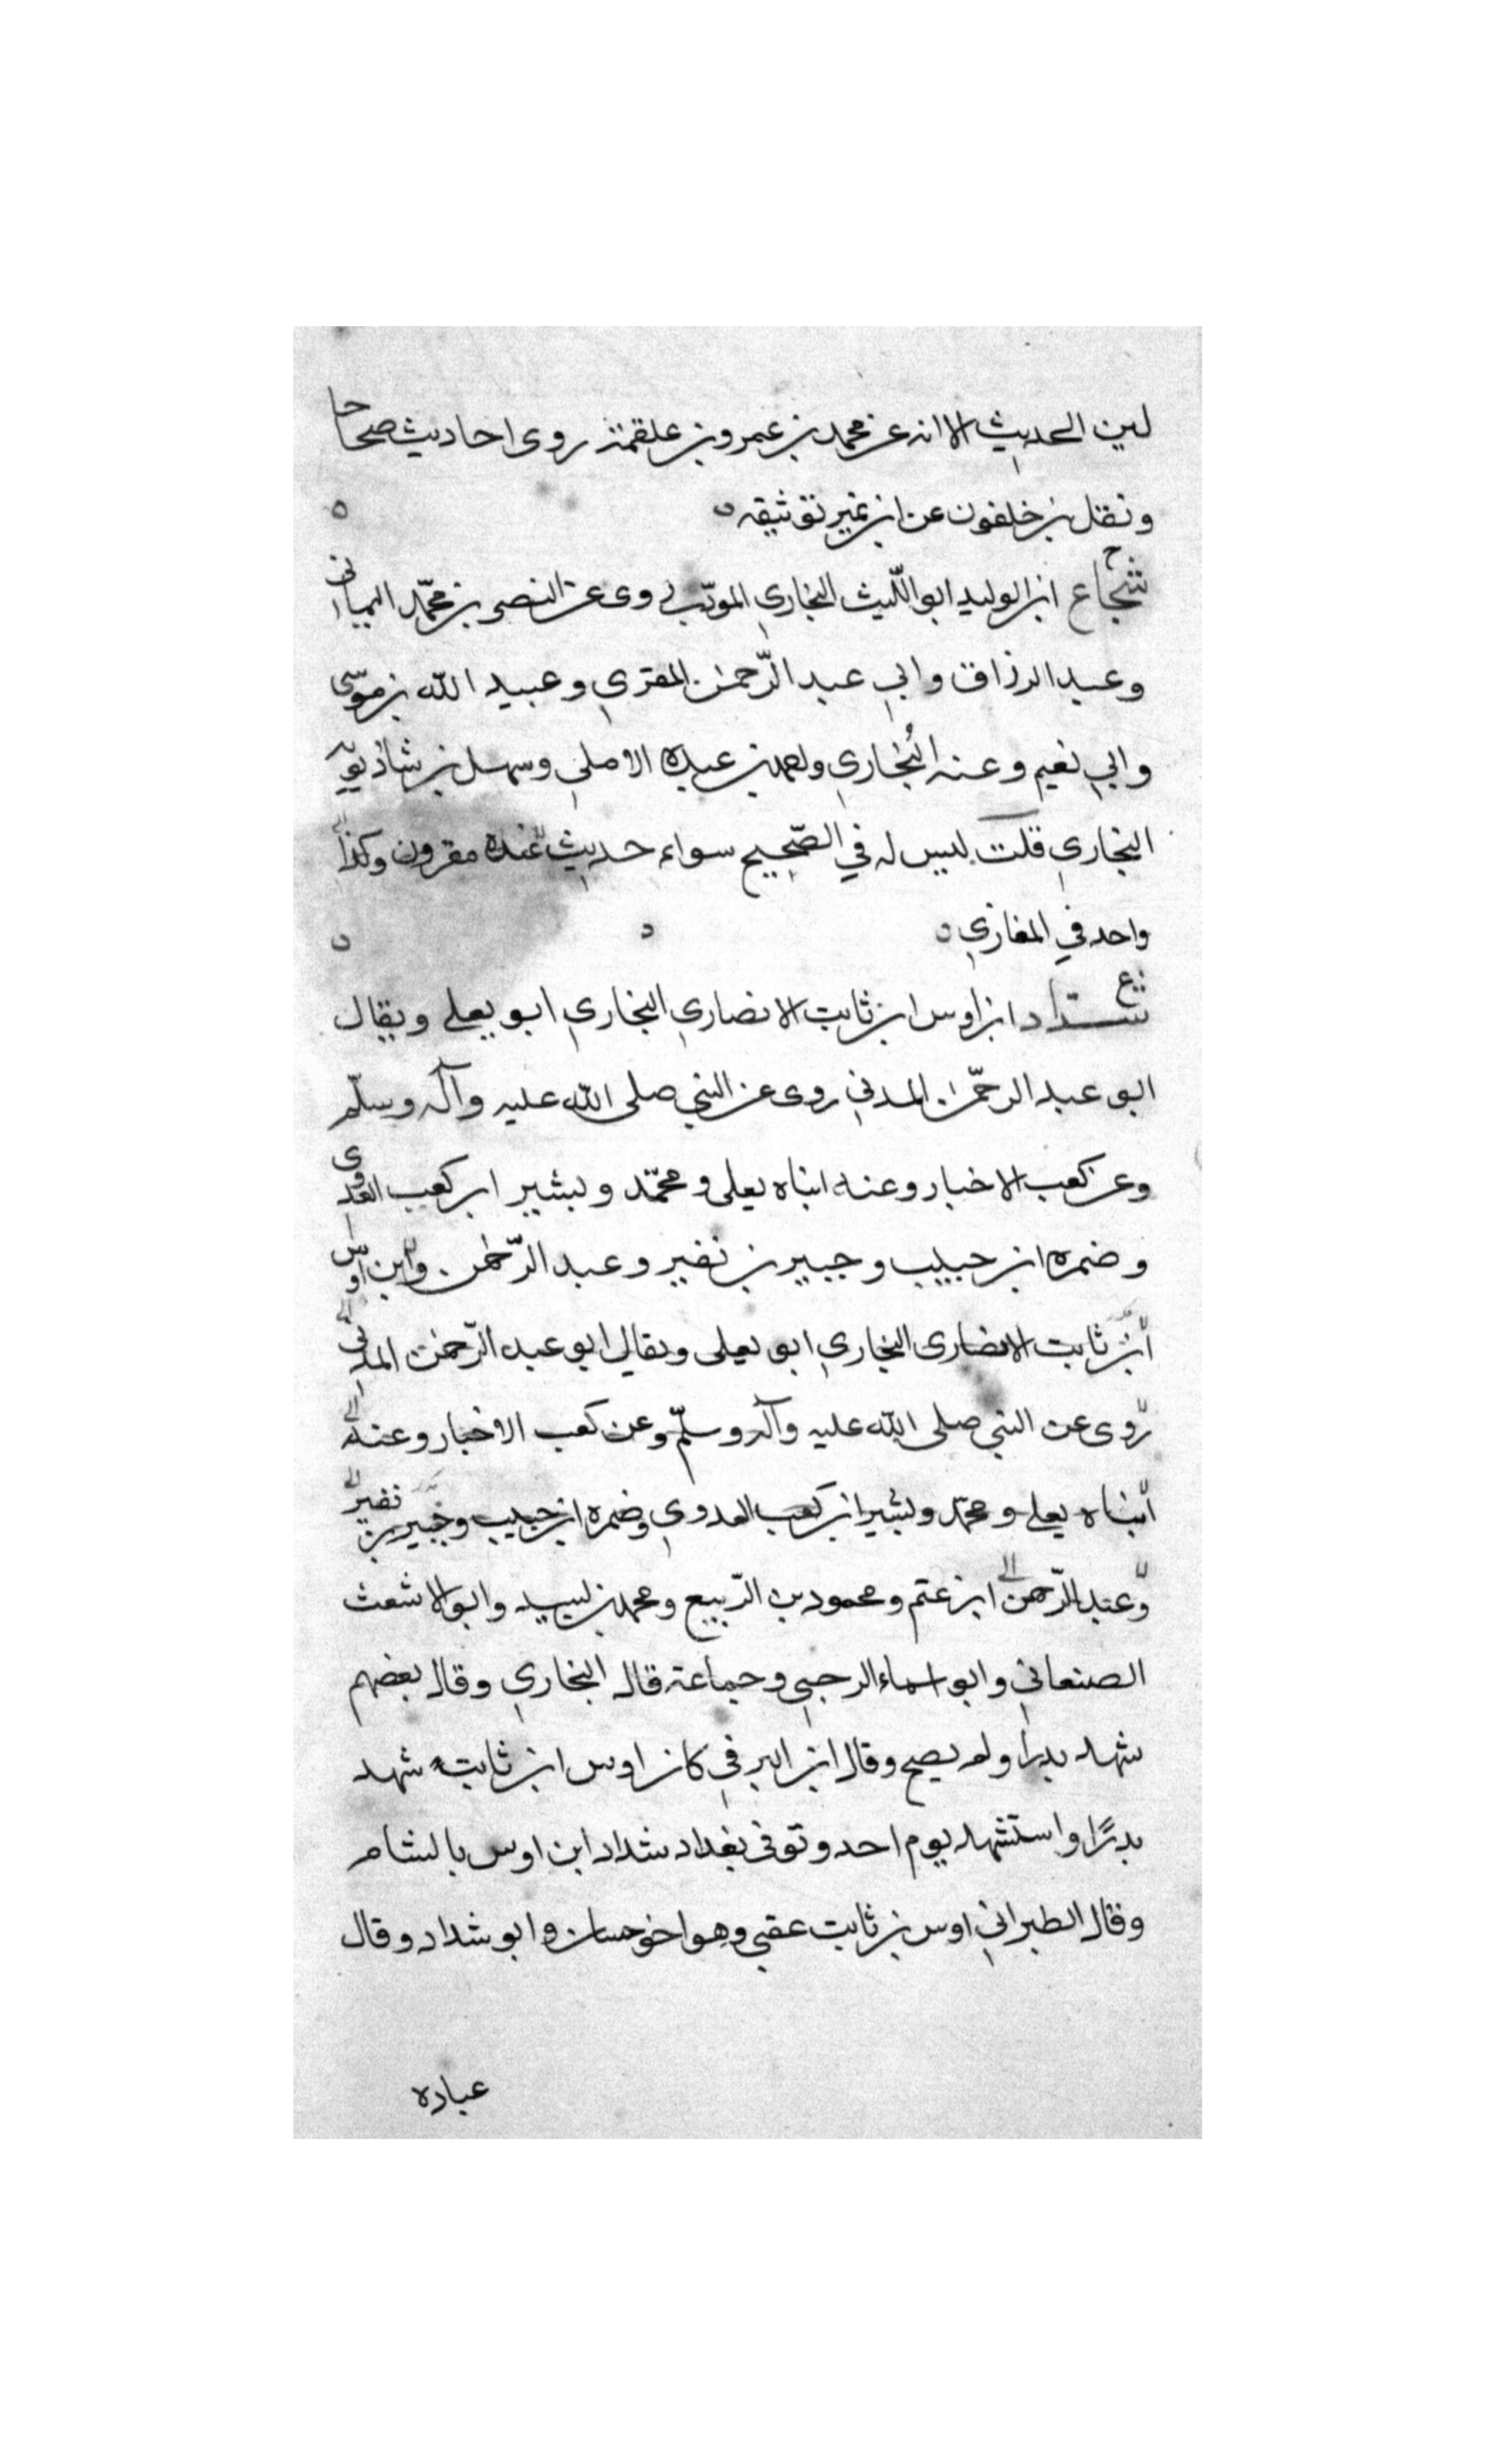 لين الحديث الا انه عن محمد بن عمرو بن علقمة روى احاديث صحاحا
ونقل بن خلفون عن ابن نمير توثيقه ه
شجاع ابن الوليد ابو اللّيث البخاري المودّب روى عن النضر بن محمّد اليماني
وعبد الرزاق وابي عبد الرّحمن المقري وعبيد الله بن موسى
وابي نعيم وعنه البُخاري ومحمد بن عبيده الاصلي وسهل بن شاذويه
البخاري قلت ليس له في الصّحيح سواء حديث عنده مقرون وكذا
واحد في المغازي ه
خ ع
شدّاد ابن اوس ابن ثابت الانصاري النجاري ابو يعلى ويقال
ابو عبد الرحمّن المدني روى عن النبي صلى الله عليه وآله وسلّم
وعن كعب الاخبار وعنه ابناه يعلى ومحمّد وبشير ابن كعب العدوى
وضمره ابن حبيب وجبير بن نفير وعبد الرّحمن وابن اوس
ابن ثابت الانصارى النجاري ابو يعلى ويقال ابو عبد الرّحمن المدني
روى عن النبي صلى الله عليه وآله وسلّم وعن كعب الاخبار وعنه
ابناه يعلى ومحمّد وبشير ابن كعب العدوي وضمره ابن حبيب وجبير بن نفير
وعبد الرّحمن ابن عتم ومحمود بن الرّبيع ومحمد بن لبيد وابو الاشعث
الصنعاني وابو اسماء الرحبي وجماعة قال البخاري وقال بعضهم
شهد بدرا ولم يصح وقال ابن البرقي كان اوس ابن ثابت شهد
بدرًا واستشهد يوم احد وتوفى بغداد شداد ابن اوس بالشام
وقال الطبراني اوس بن ثابت عقبي وهو اخو حسان وابو شداد وقال
عباده